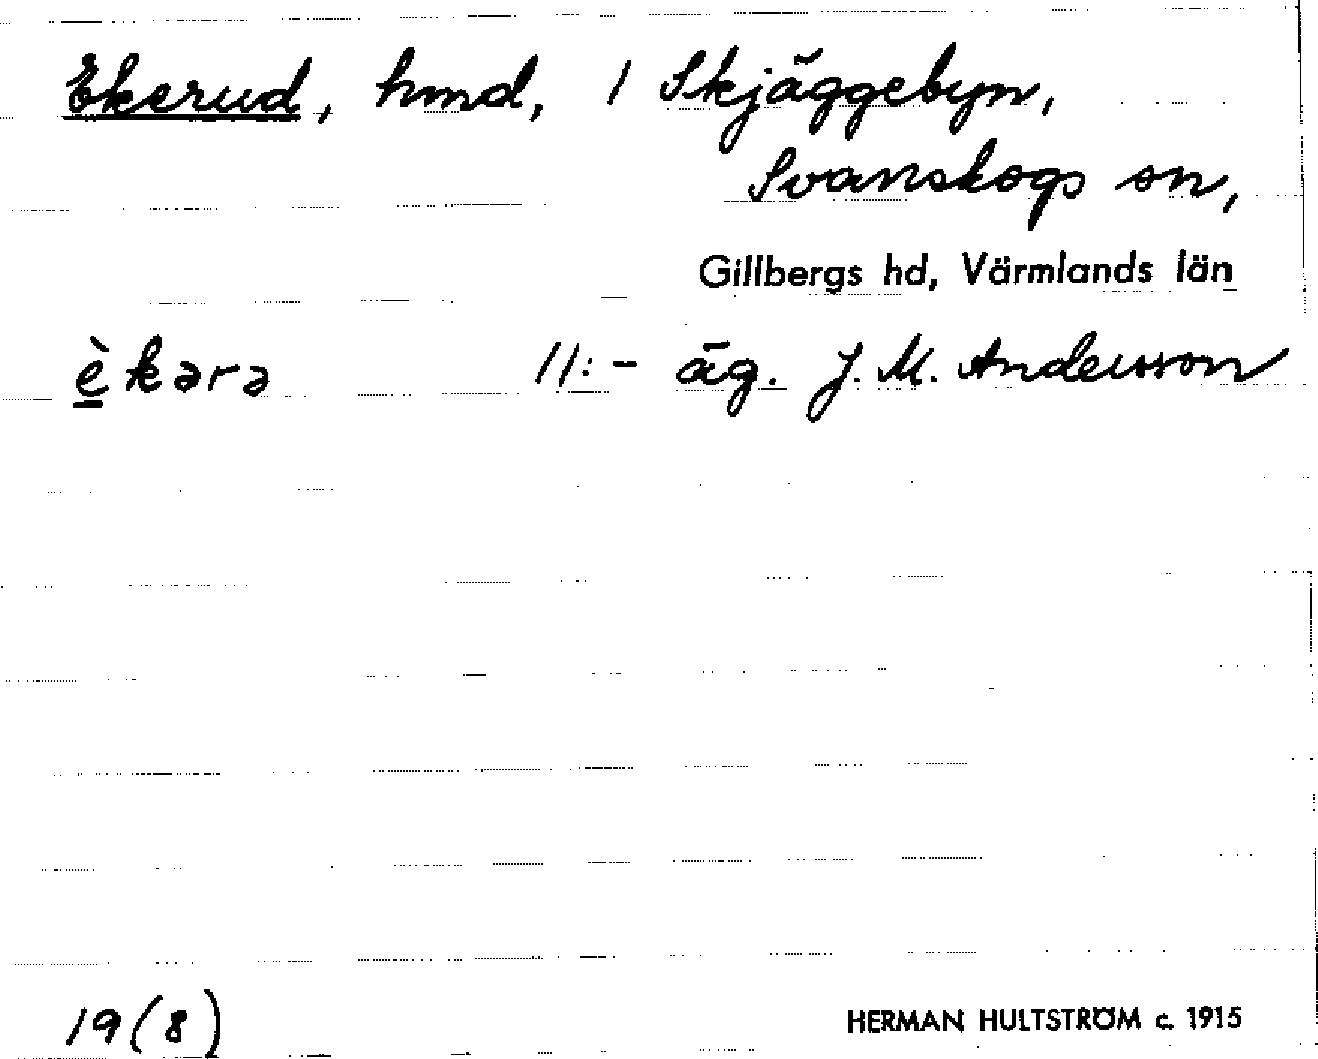 Ekerud, hmd, 1 Skjäggebyn,
Svanskogs sn,
Gillbergs hd, Värmlands län
èkərə 11:- äg. J. M. Andersson
19(8) HERMAN HULTSTRÖM c. 1915